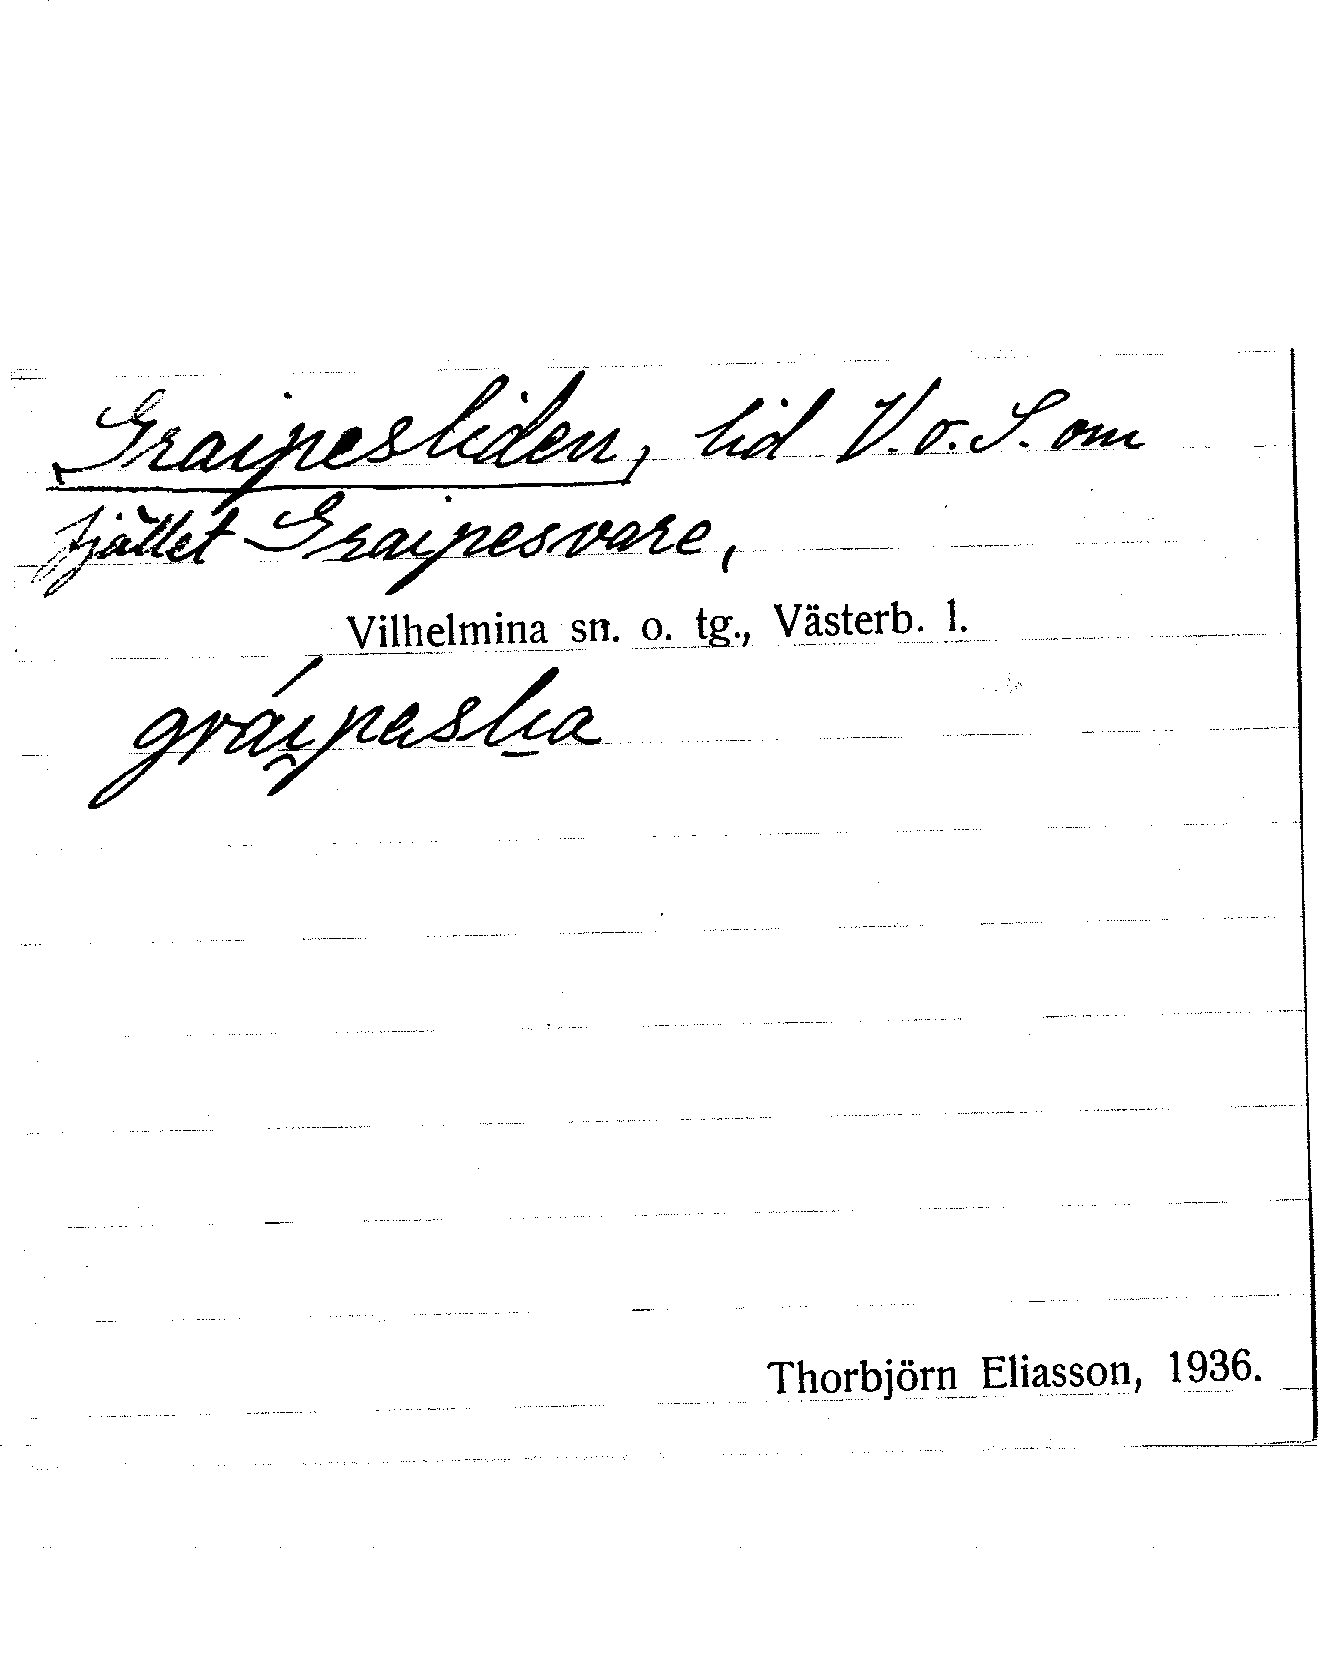 Graipesliden, lid V. o. S. om
fjället Graipesvare,
Vilhelmina sn. o. tg., Västerb. l.
grái̯pesli̠a
Thorbjörn Eliasson, 1936.